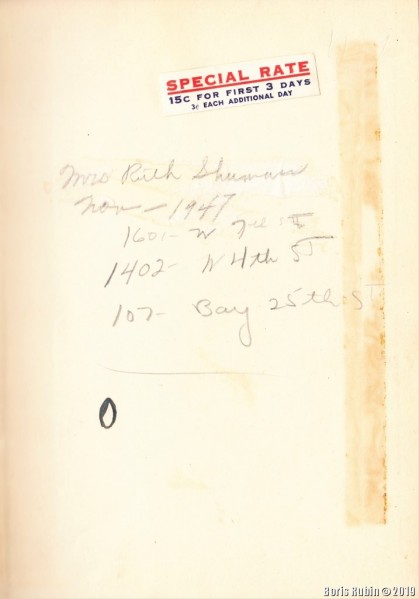 SPECIAL RATE
15¢ FOR FIRST 3 DAYS
3¢ EACH ADDITIONAL DAY
Mrs Ruth Shuman
Nov – 1947
1601- W 7th St
1402- W 4th ST
107- Bay 25th ST
Boris Rubin © 2019